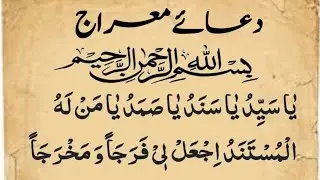 دعائے معراج
بِسْمِ اللهِ الرَّحْمٰنِ الرَّحِيْمِ
يَا سَيِّدُ يَا سَنَدُ يَا صَمَدُ يَا مَنْ لَهُ
الْمُسْتَنَدُ اِجْعَلْ لِيْ فَرَجاً وَ مَخْرَجاً